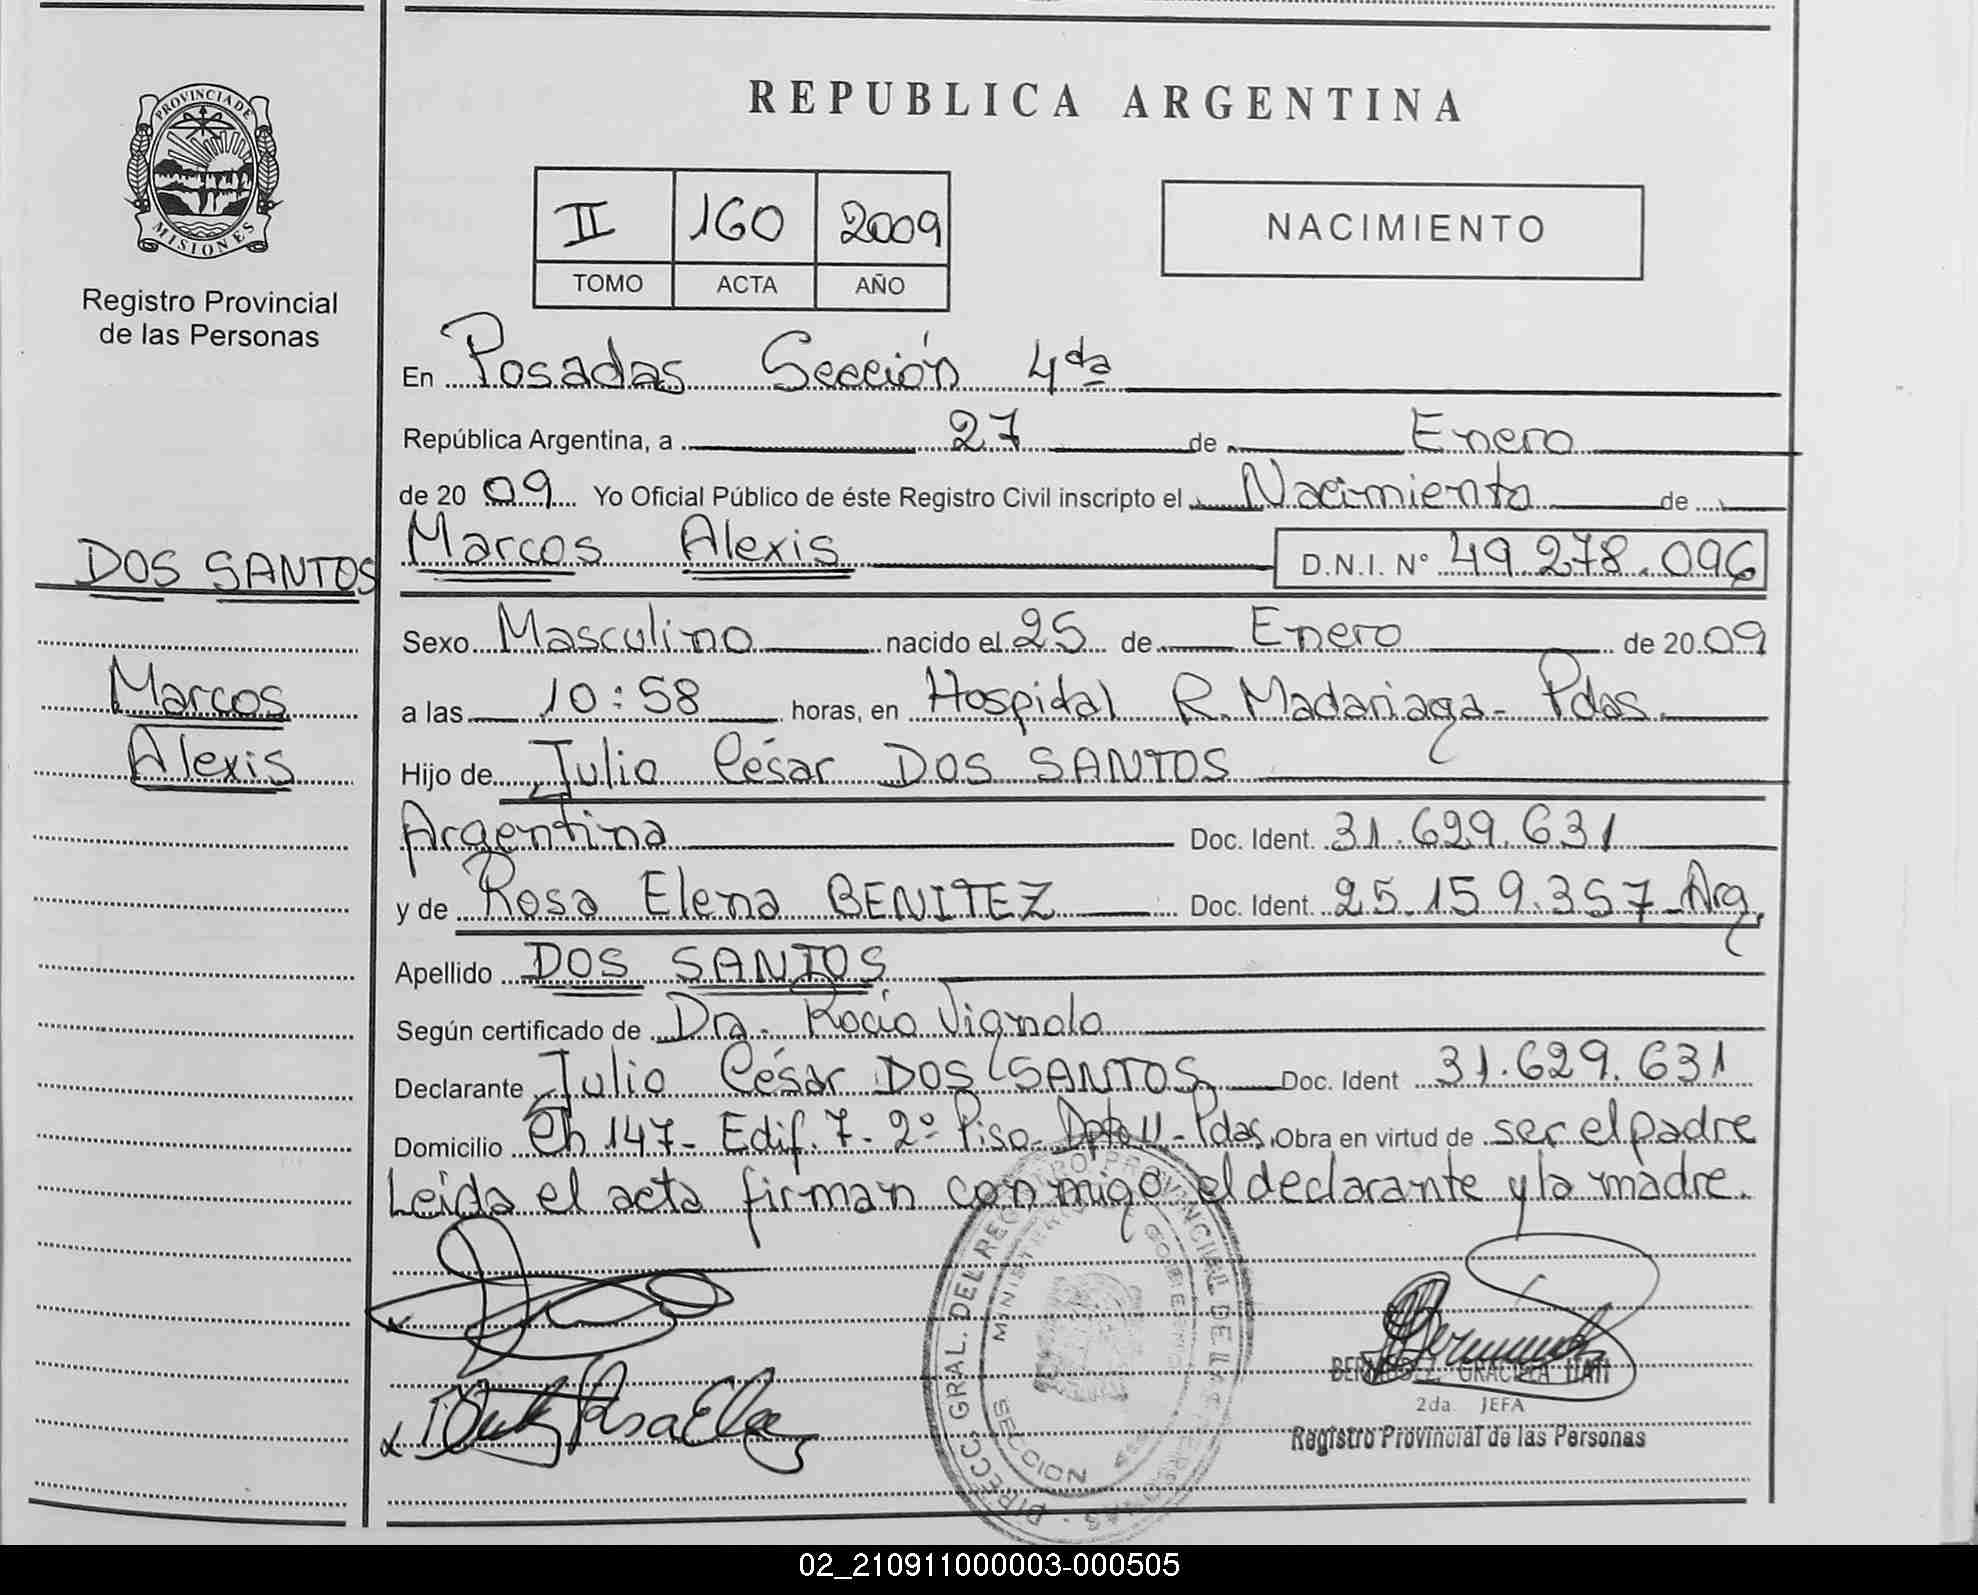 REPUBLICA ARGENTINA
PROVINCIA DE
MISIONES
Registro Provincial
de las Personas
II 160 2009
TOMO ACTA AÑO
NACIMIENTO
En Posadas Sección 4da
República Argentina, a 27 de Enero
de 2009 Yo Oficial Público de éste Registro Civil inscripto el Nacimiento de
DOS SANTOS
Marcos
Alexis
Marcos Alexis D.N.I. Nº 49.278.096
Sexo Masculino nacido el 25 de Enero de 2009
a las 10:58 horas, en Hospital R. Madariaga - Pdas.
Hijo de Julio César DOS SANTOS
Argentina Doc. Ident. 31.629.631
y de Rosa Elena BENITEZ Doc. Ident. 25.159.357 Arg.
Apellido DOS SANTOS
Según certificado de Dra. Rocío Vignolo
Declarante Julio César DOS SANTOS Doc. Ident 31.629.631
Domicilio Ch 147- Edif. 7- 2º Piso- Dpto U - Pdas. Obra en virtud de ser el padre
Leida el acta firman conmigo el declarante y la madre.
DIRECC. GRAL. DEL REGISTRO PROVINCIAL DE LAS PERSONAS
MINISTERIO DE GOBIERNO
SECCION
GRACIELA ITATI
2da. JEFA
Registro Provincial de las Personas
02_210911000003-000505